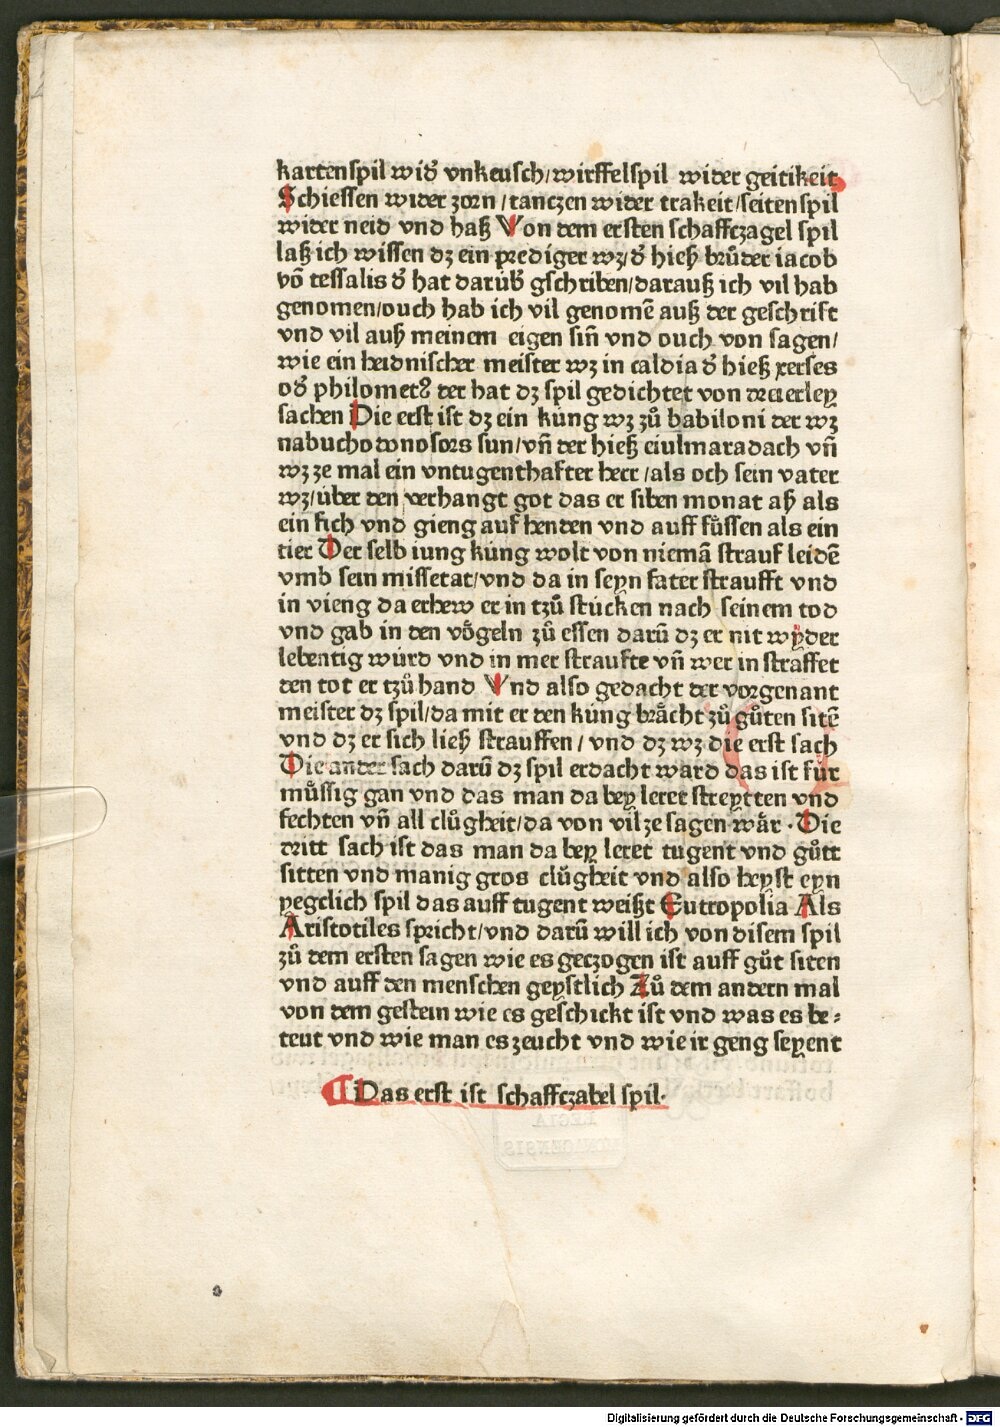 kartenspil wid᷑ vnkeusch/wirffelspil wider geitikeit
Schiessen wider zorn/tanczen wider trakeit/seitenspil
wider neid vnd haß Von dem ersten schaffczagel spil
laß ich wissen dz ein prediger wz/d᷑ hieß brůder iacob
vō tessalis d᷑ hat darúb᷑ gschriben/darauß ich vil hab
genomen/ouch hab ich vil genomē auß der geschrift
vnd vil auß meinem eigen siñ vnd ouch von sagen/
wie ein heidnischer meister wz in caldia d᷑ hieß xerses
od᷑ philometꝰ der hat dz spil gedichtet von drierley
sachen Die erst ist dz ein kúng wz zů babiloni der wz
nabuchodonosors sun/vñ der hieß eiulmaradach vñ
wz ze mal ein vntugenthafter herr/als och sein vater
wz/úber den verhangt got das er siben monat aß als
ein fich vnd gieng auf henden vnd auff fůssen als ein
tier Der selb iung kúng wolt von niemā strauf leidē
vmb sein missetat/vnd da in seyn fater straufft vnd
in vieng da erhew er in tzů stúcken nach seinem tod
vnd gab in den vögeln zů essen darū dz er nit wyder
lebentig wúrd vnd in mer straufte vñ wer in straffet
den tot er tzů hand Vnd also gedacht der vorgenant
meister dz spil/da mit er den kúng brächt zů gůten sitē
vnd dz er sich ließ strauffen/vnd dz wz die erst sach
Die ander sach darū dz spil erdacht ward das ist fúr
můssig gan vnd das man da bey leret streytten vnd
fechten vñ all clůgheit/da von vil ze sagen wär·Die
dritt sach ist das man da bey leret tugent vnd gůtt
sitten vnd manig gros clůgheit vnd also heyst eyn
yegclich spil das auff tugent weißt Eutropolia Als
Aristotiles spricht/vnd darū will ich von disem spil
zů dem ersten sagen wie es geczogen ist auff gůt siten
vnd auff den menschen geystlich Zů dem andern mal
von dem gestein wie es geschickt ist vnd was es be⸗
teut vnd wie man es zeucht vnd wie ir geng seyent
¶ Das erst ist schaffczabel spil·
Digitalisierung gefördert durch die Deutsche Forschungsgemeinschaft - DFG